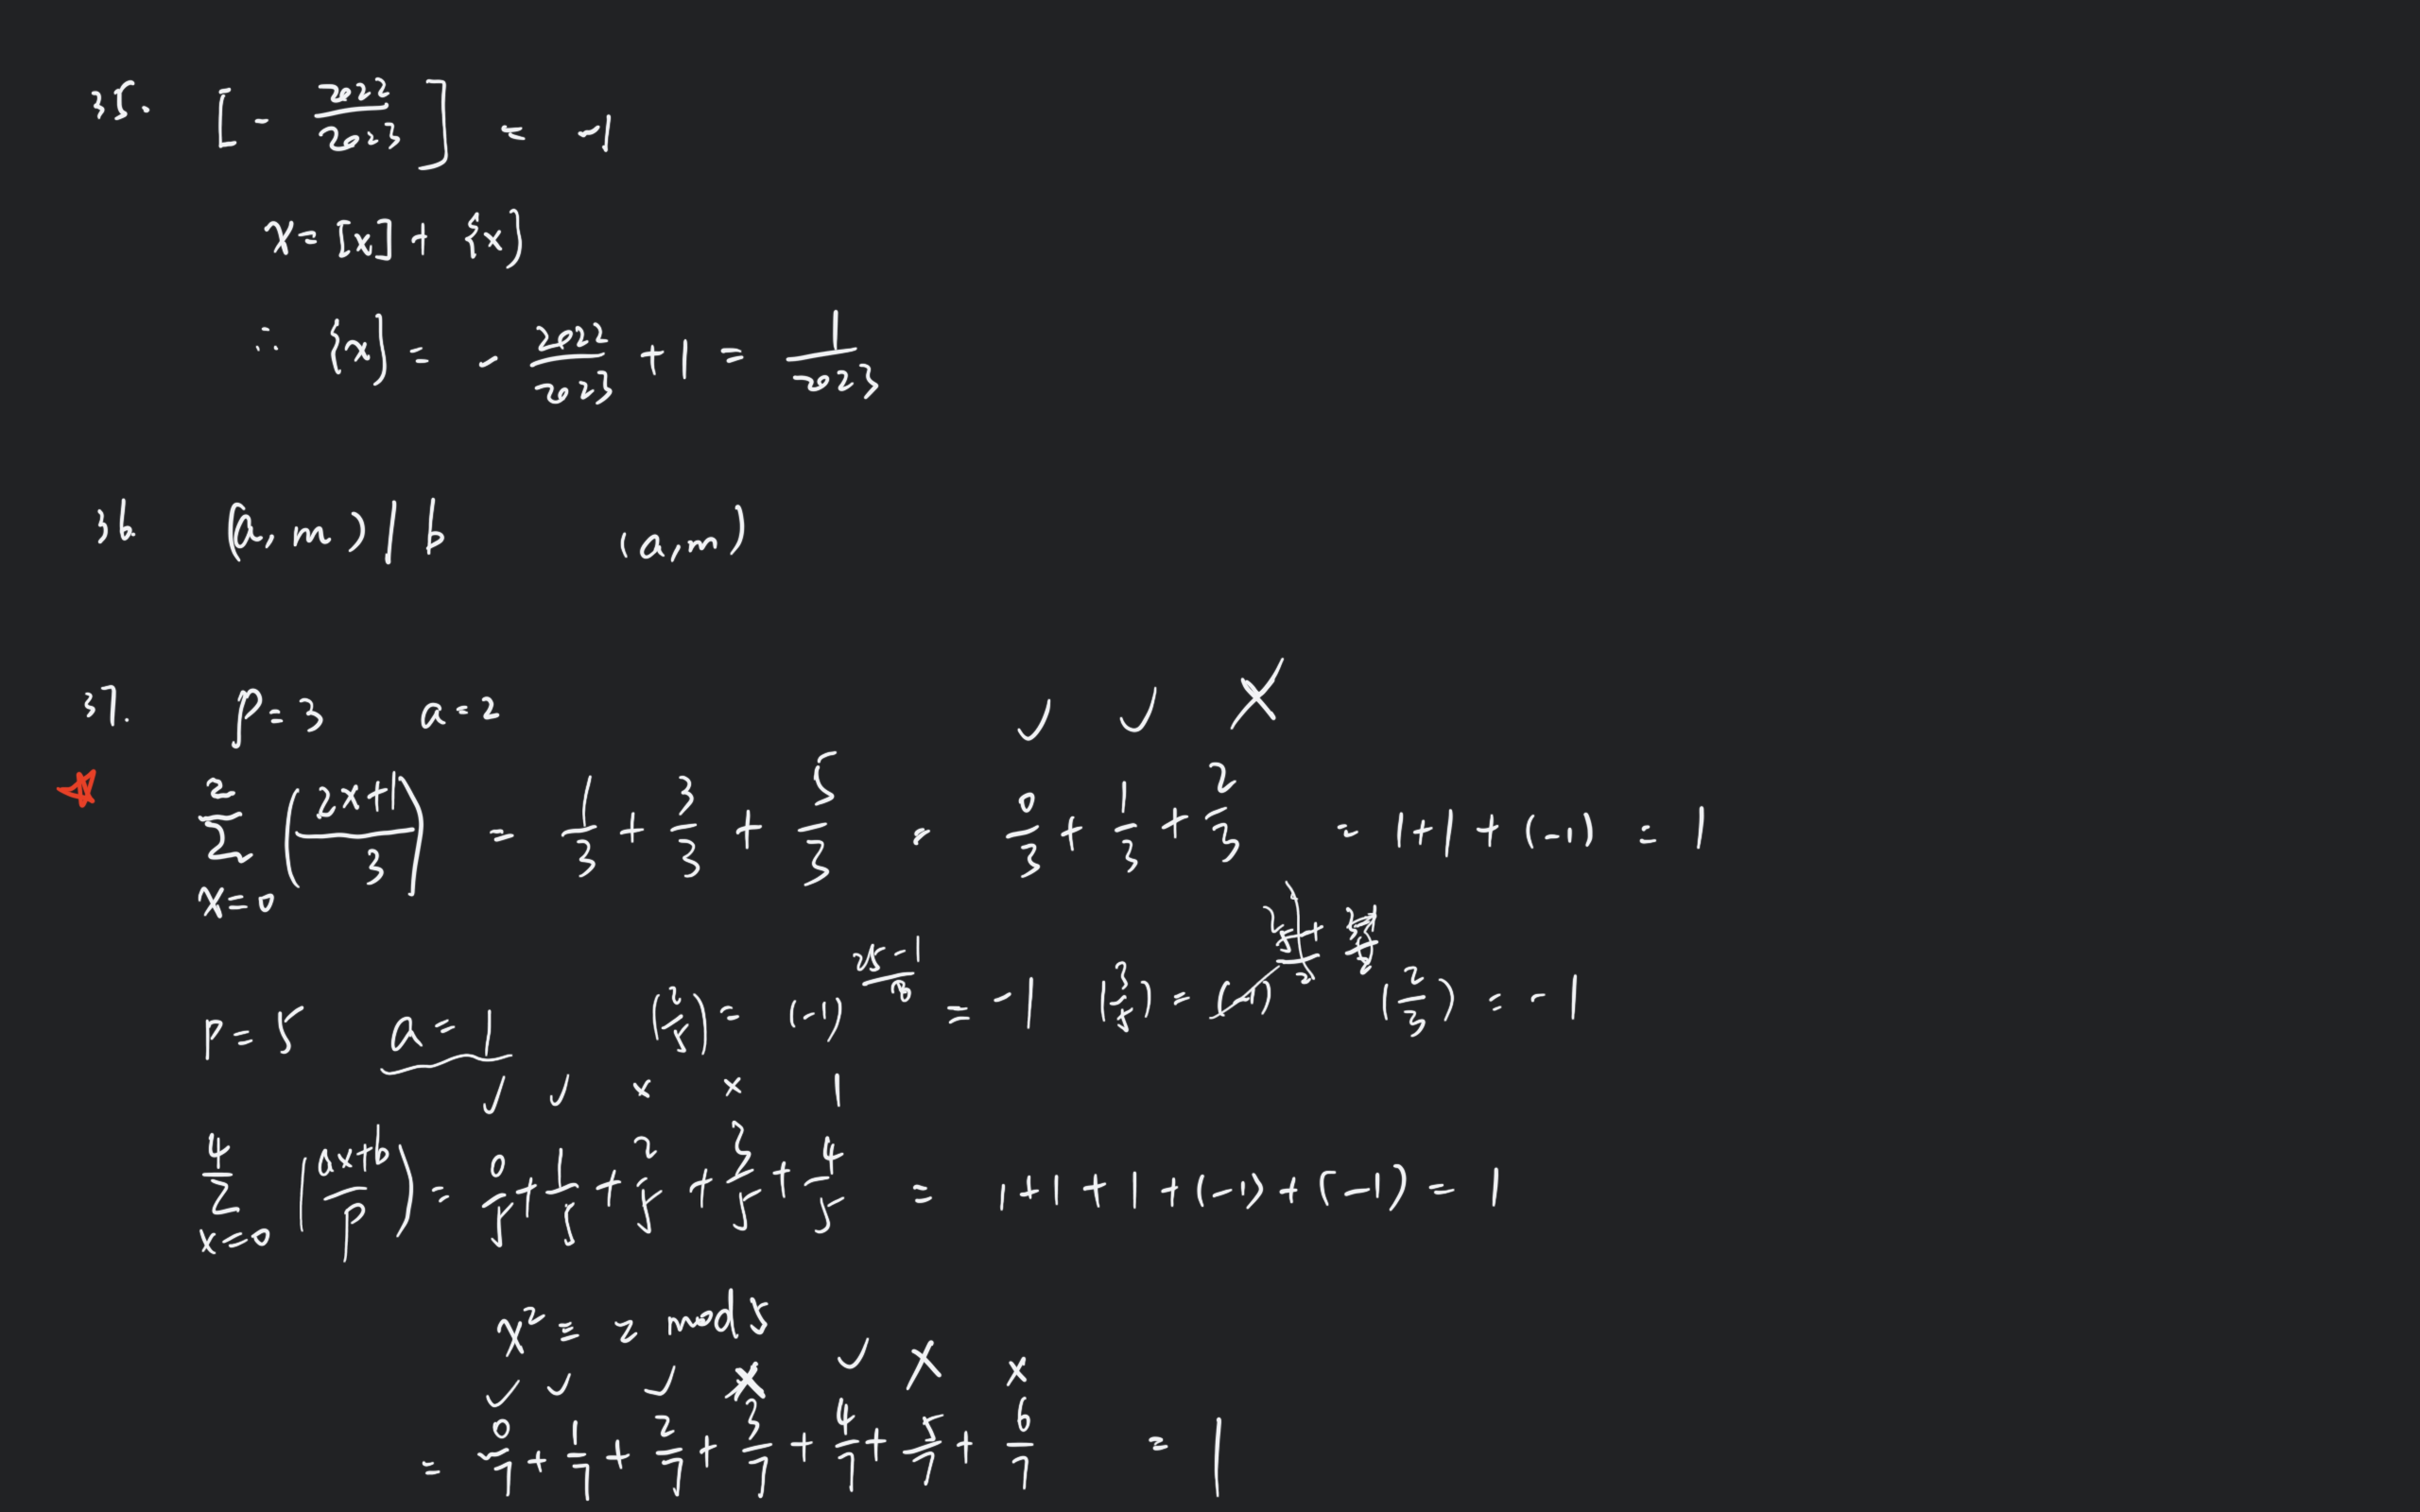 35. [- 2022/2023] = -1
x = [x] + {x}
∴ {x} = - 2022/2023 + 1 = 1/2023
36. (a, m) | b (a, m)
37. p = 3 a = 2 ✓ ✓ ×
∑_{x=0}^{2} ((2x+1)/3) = 1/3 + 3/3 + 5/3 = 0/3 + 1/3 + 2/3 = 1+1+(-1) = 1
p = 5 a = 1 (2/5) = (-1)^{(25-1)/8} = -1 (3/5) = (2/3) = -1
✓ ✓ × × 1
∑_{x=0}^{4} ((ax+b)/p) = 0/5 + 1/5 + 2/5 + 3/5 + 4/5 = 1+1+1+(-1)+(-1) = 1
x² ≡ 2 mod 5
✓ ✓ ✓ × ✓ × ×
= 0/7 + 1/7 + 2/7 + 3/7 + 4/7 + 5/7 + 6/7 = 1